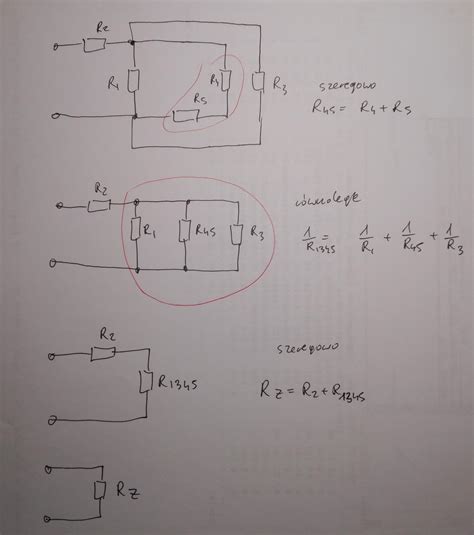 R2
R1
R4
R5
R3
szeregowo
R45 = R4 + R5
R2
R1
R45
R3
równolegle
1/R1345 = 1/R1 + 1/R45 + 1/R3
R2
R1345
szeregowo
RZ = R2 + R1345
RZ